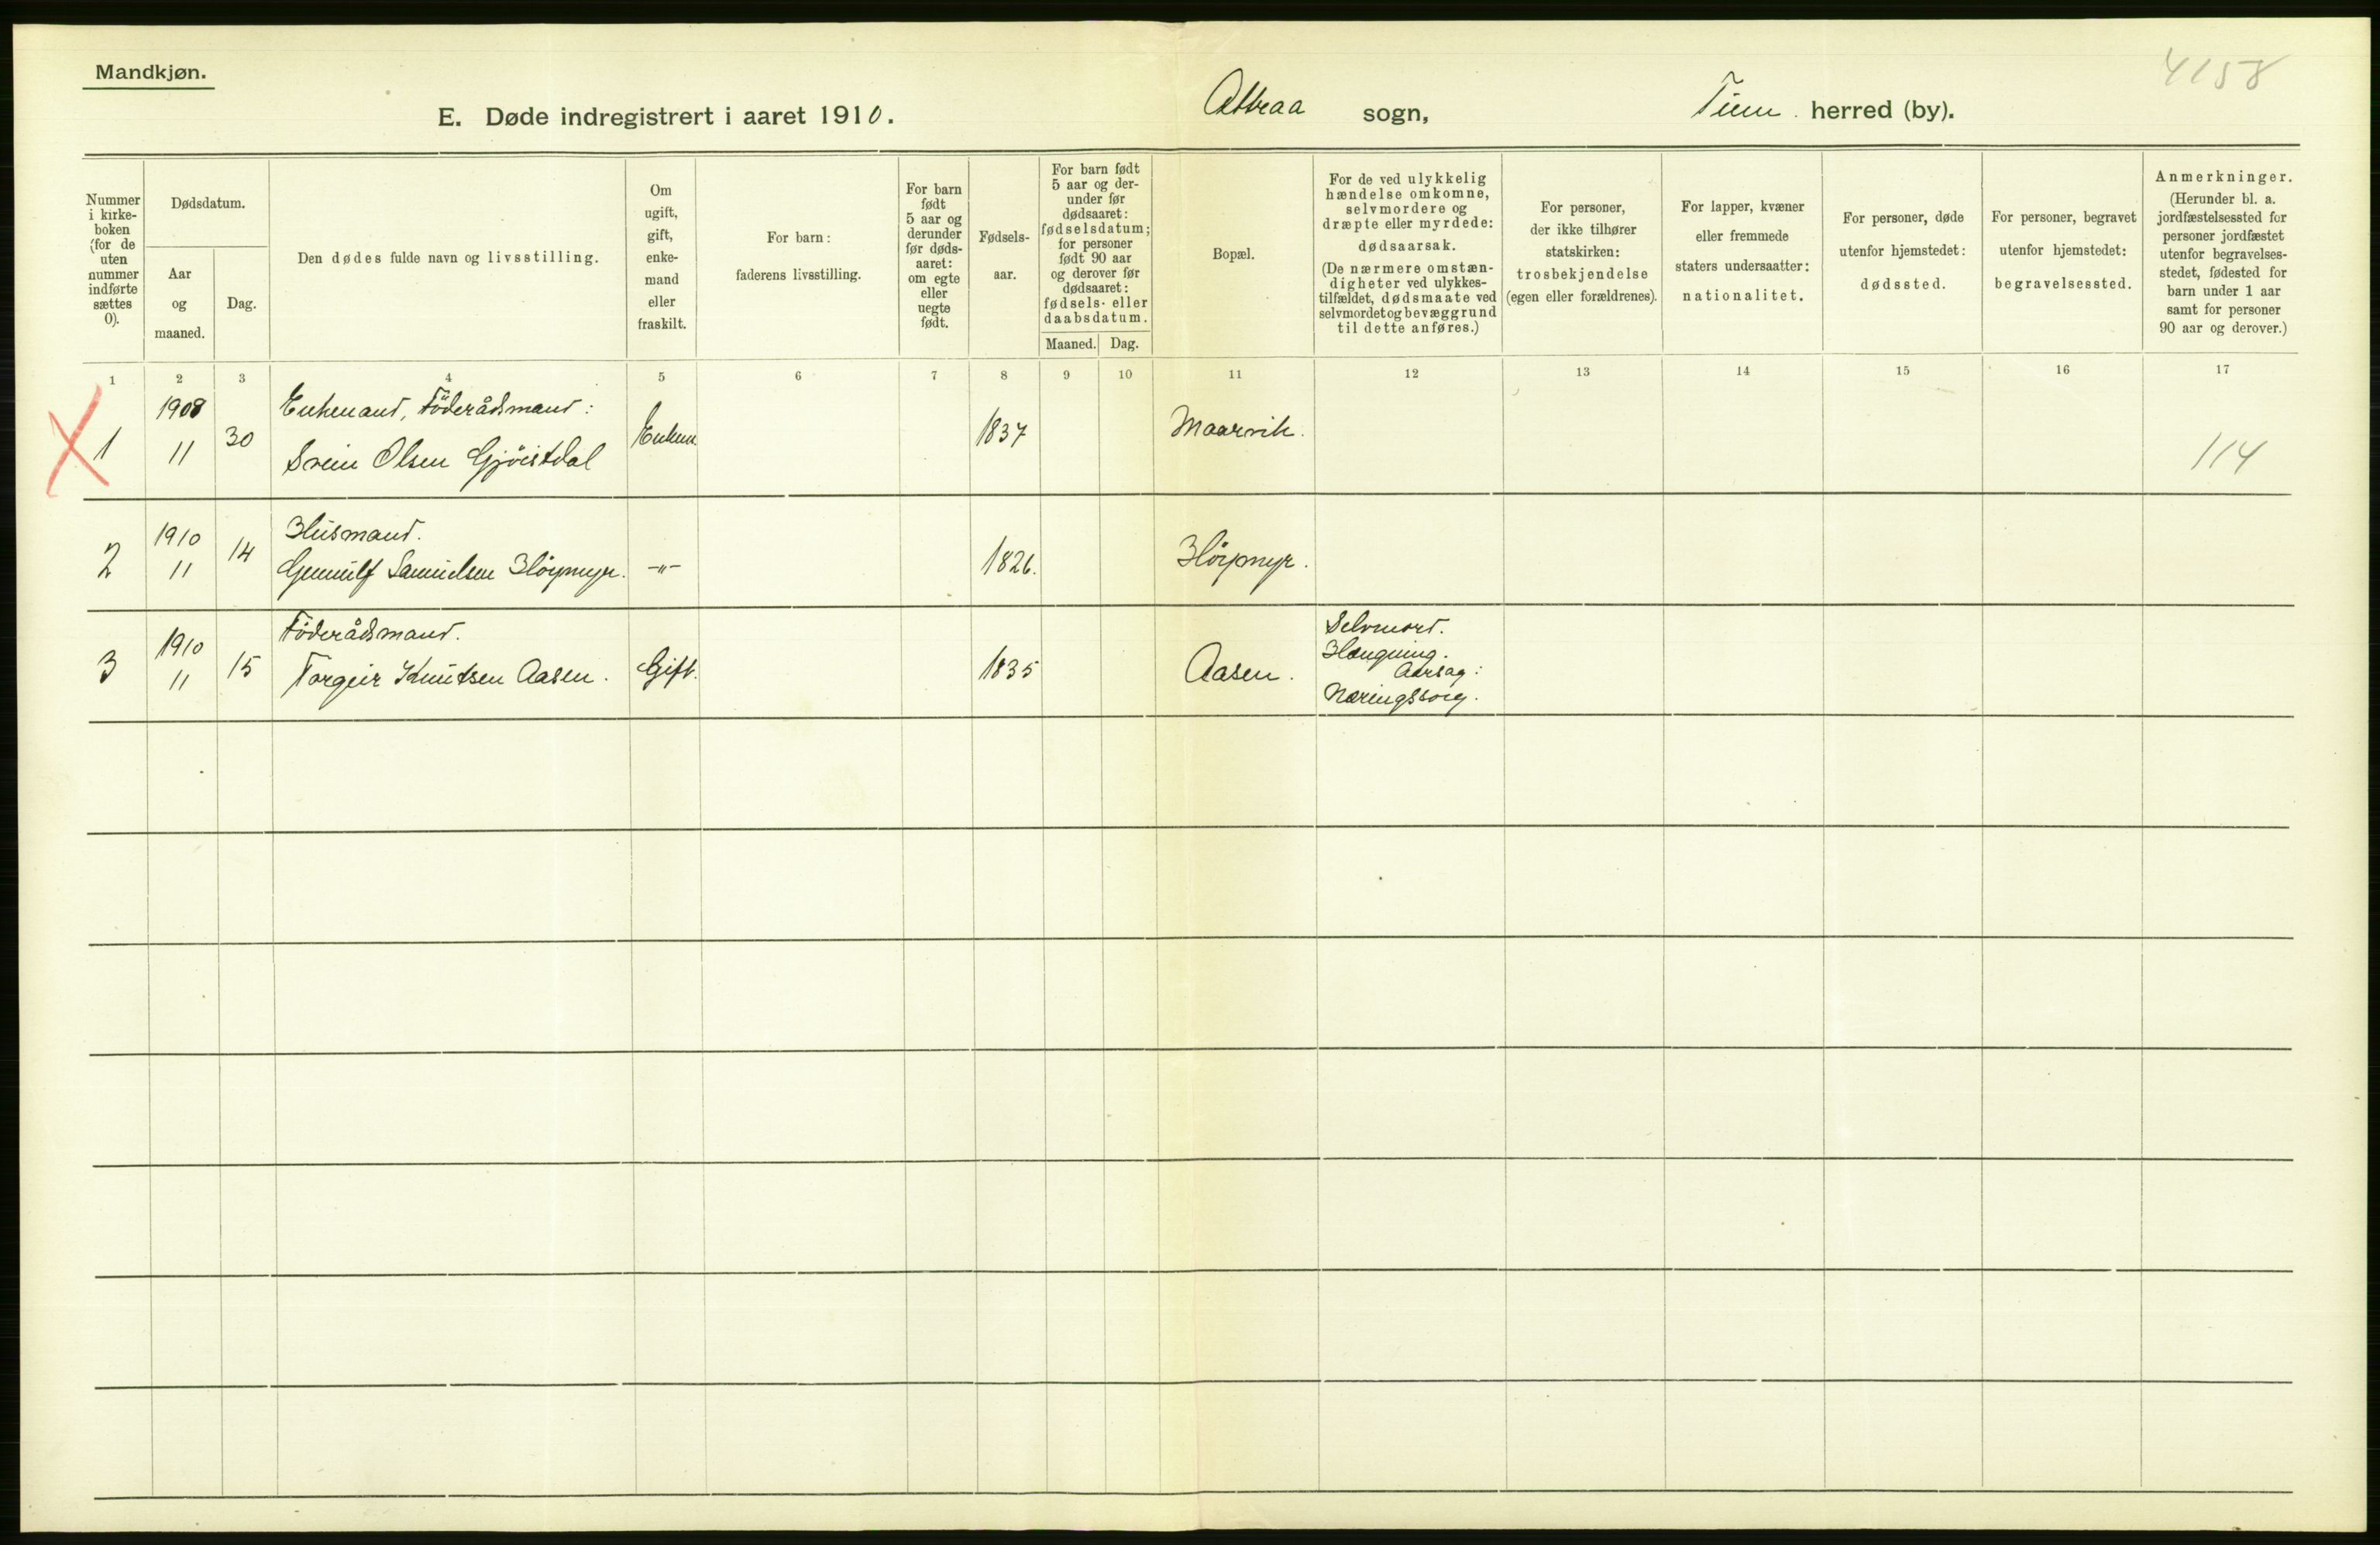 Mandkjøn.
4158
E. Døde indregistrert i aaret 1910.
Attraa sogn,
Tinn herred (by).
Nummer i kirke-boken (for de uten nummer indførte sættes 0).
Dødsdatum.
Aar og maaned.
Dag.
Den dødes fulde navn og livsstilling.
Om ugift, gift, enke-mand eller fraskilt.
For barn: faderens livsstilling.
For barn født 5 aar og derunder før døds-aaret: om egte eller uegte født.
Fødsels-aar.
For barn født 5 aar og der-under før dødsaaret: fødselsdatum; for personer født 90 aar og derover før dødsaaret: fødsels- eller daabsdatum.
Maaned. Dag.
Bopæl.
For de ved ulykkelig hændelse omkomne, selvmordere og dræpte eller myrdede: dødsaarsak.
(De nærmere omstæn-digheter ved ulykkes-tilfældet, dødsmaate ved selvmordet og bevæggrund til dette anføres.)
For personer, der ikke tilhører statskirken: trosbekjendelse (egen eller forældrenes).
For lapper, kvæner eller fremmede staters undersaatter: nationalitet.
For personer, døde utenfor hjemstedet: dødssted.
For personer, begravet utenfor hjemstedet: begravelsessted.
Anmerkninger.
(Herunder bl. a. jordfæstelsessted for personer jordfæstet utenfor begravelses-stedet, fødested for barn under 1 aar samt for personer 90 aar og derover.)
1 2 3 4 5 6 7 8 9 10 11 12 13 14 15 16 17
1908 Enkemand, Föderådsmand:
1 11 30 Svein Olsen Gjöistdal Enkem. 1837 Maarvik. 114
1910 Husmand.
2 11 14 Gunnulf Samuelsen Höymyr. -"- 1826. Höymyr.
1910 Föderådsmand. Selvmord.
Hængning.
3 11 15 Torgeir Knutsen Aasen. Gift. 1835 Aasen. Aarsag:
Næringssorg.